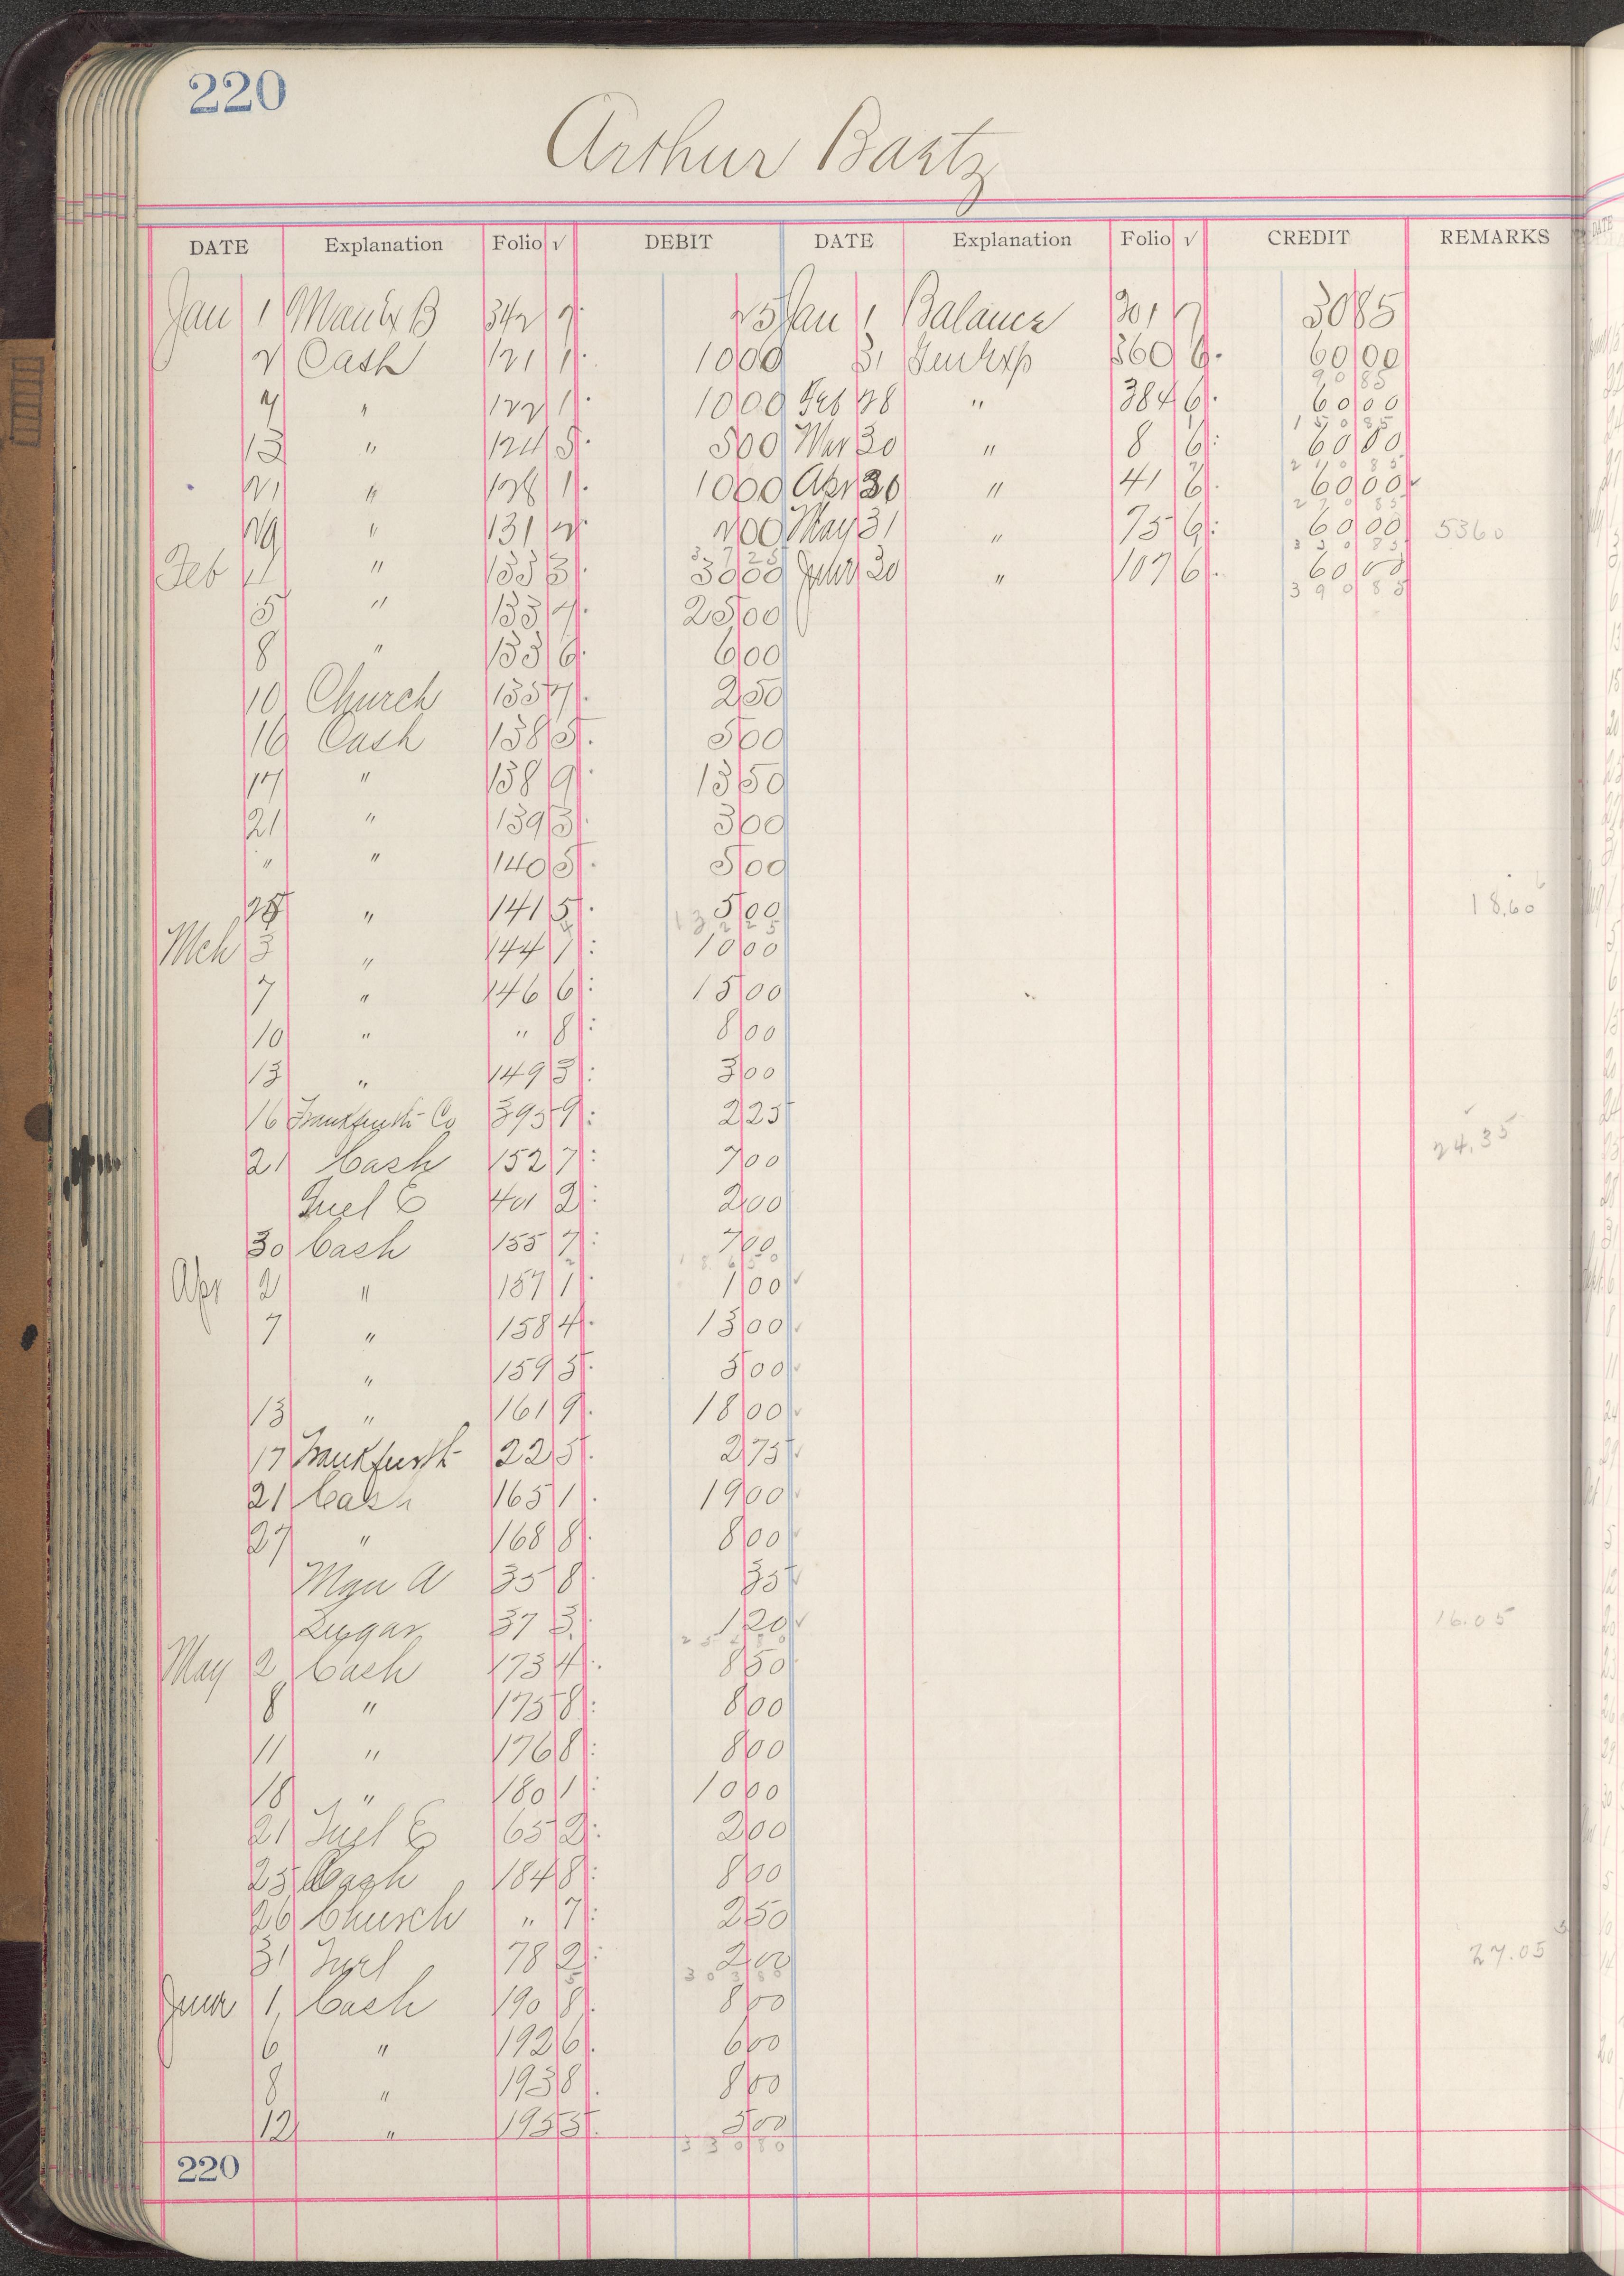 220
Arthur Bartz
DATE Explanation Folio √ DEBIT DATE Explanation Folio √ CREDIT REMARKS
Jan 1 342 7 25 Jan 1 Balance 301 7 30 85
2 Cash 121 1 10 00 31 Gen Exp 360 6 60 00
90 85
7 " 122 1 10 00 Feb 28 " 384 6 60 00
150 85
13 " 124 5 5 00 Mar 30 " 8 6 60 00
210 85
21 " 128 1 10 00 Apr 30 " 41 6 60 00
270 85
29 " 131 2 2 00 May 31 " 75 6 60 00 5360
37 25 330 85
Feb 1 " 133 3 30 00 June 30 " 107 6 60 00
390 85
5 " 133 7 25 00
8 " 133 6 6 00
10 Church 135 7 2 50
16 Cash 138 5 5 00
17 " 138 9 13 50
21 " 139 3 3 00
" " 140 5 5 00
28 " 141 5 5 00 18.60
132 25
Mch 3 " 144 1 10 00
7 " 146 6 15 00
10 " " 8 8 00
13 " 149 3 3 00
16 Frankfurth Co 395 9 2 25 24.35
21 Cash 152 7 7 00
Fuel C 401 2 2 00
30 Cash 155 7 7 00
186 50
Apr 2 " 157 1 1 00
7 " 158 4 13 00
" 159 5 5 00
13 " 161 9 18 00
17 Frankfurth 22 5 2 75
21 Cash 165 1 19 00
27 " 168 8 8 00
Mgn A 35 8 35
Sugar 37 3 1 20 16.05
254 80
May 2 Cash 173 4 8 50
8 " 175 8 8 00
11 " 176 8 8 00
18 " 180 1 10 00
21 Fuel C 65 2 2 00
25 Cash 184 8 8 00
26 Church " 7 2 50
31 Fuel 78 2 2 00 27.05
303 80
June 1 Cash 190 8 8 00
6 " 192 6 6 00
8 " 193 8 8 00
12 " 195 5 5 00
330 80
220